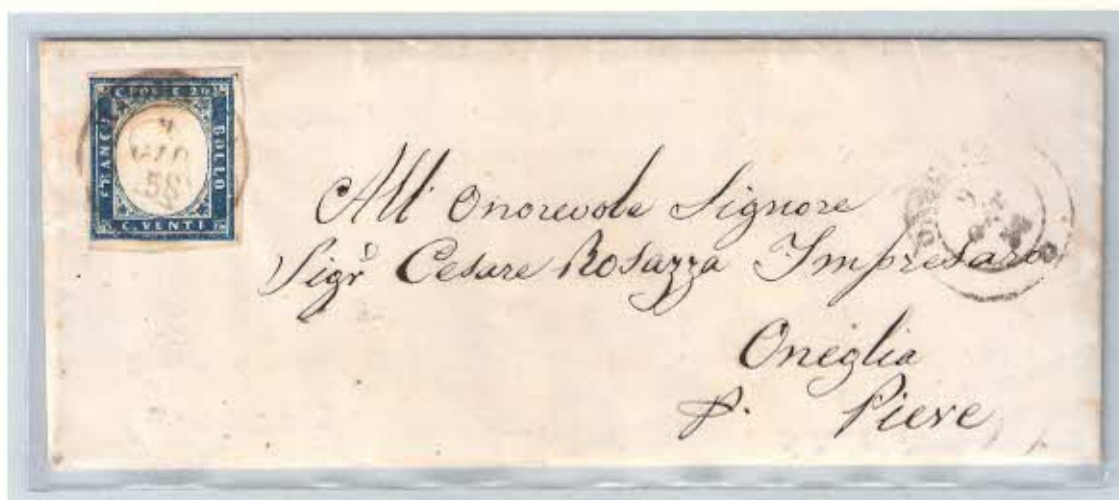 C. POSTE 20
FRANCO
BOLLO
C. VENTI
58
All' Onorevole Signore
Sigr Cesare Rosazza Impresaro
Oneglia
p. Pieve